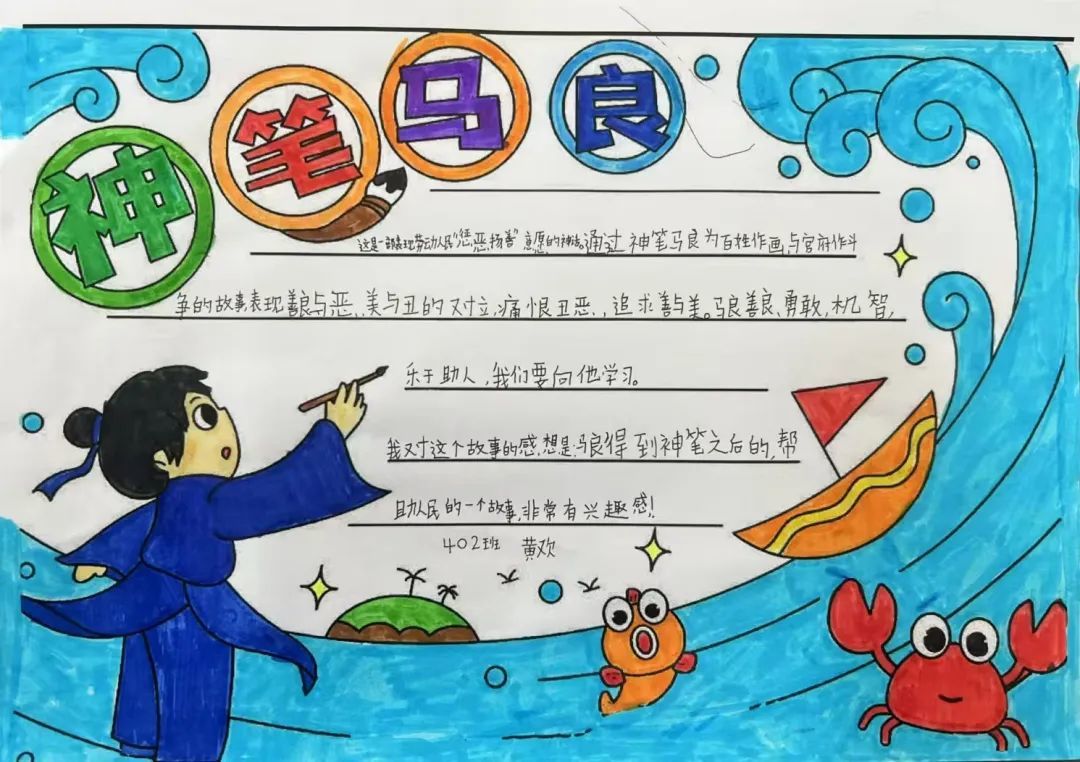 神笔马良
这是一部表现劳动人民“惩恶扬善”意愿的神话。通过神笔马良为百姓作画,与官府作斗
争的故事,表现善良与恶、美与丑的对立,痛恨丑恶,追求善与美。马良善良、勇敢,机智,
乐于助人,我们要向他学习。
我对这个故事的感想是:马良得到神笔之后的,帮
助人民的一个故事,非常有兴趣感!
402班 黄欢